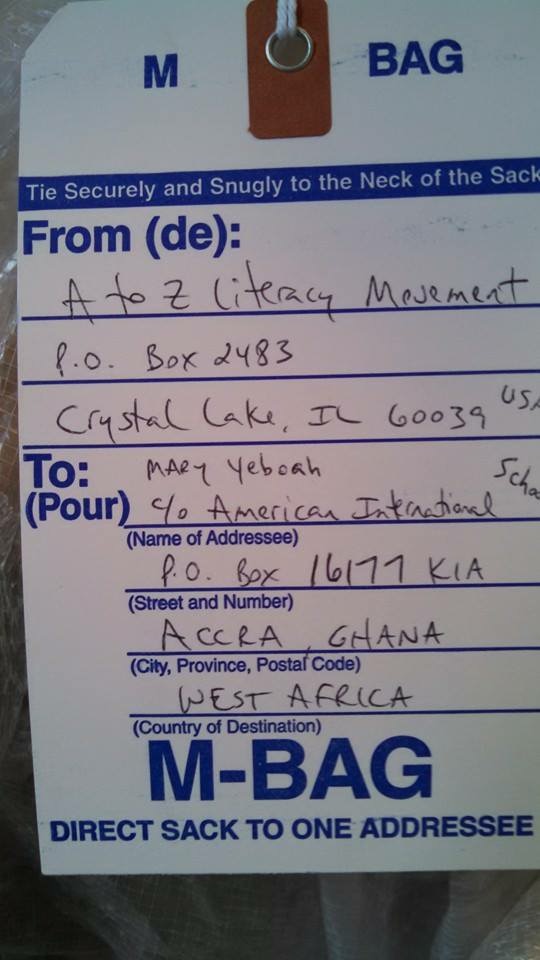 M BAG
Tie Securely and Snugly to the Neck of the Sack
From (de):
A to Z Literacy Movement
P.O. Box 2483
Crystal Lake, IL 60039 USA
To: MARY Yeboah
(Pour) c/o American International
(Name of Addressee)
P.O. Box 16177 KIA
(Street and Number)
ACCRA, GHANA
(City, Province, Postal Code)
WEST AFRICA
(Country of Destination)
M-BAG
DIRECT SACK TO ONE ADDRESSEE